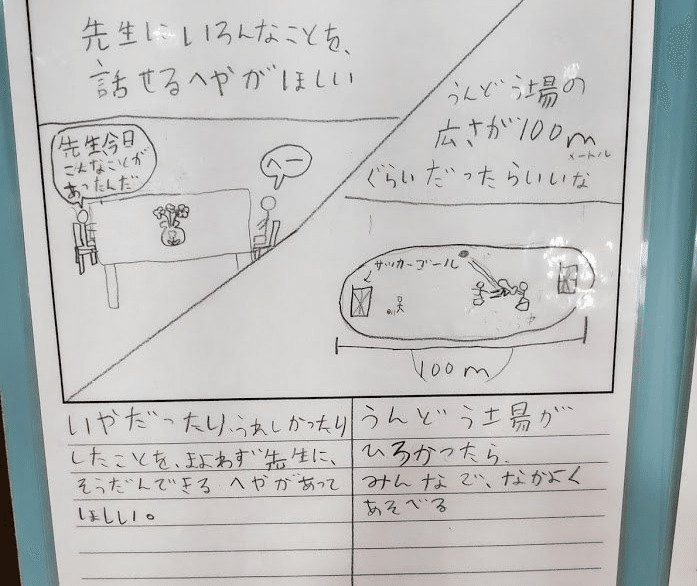 先生にいろんなことを、
話せるへやがほしい
先生、今日
こんなことが
あったんだ
へー
うんどう場の
広さが100m
メートル
ぐらいだったらいいな
サッカーゴール
100m
いやだったり、うれしかったり
したことを、まよわず先生に、
そうだんできるへやがあって
ほしい。
うんどう場が
ひろかったら、
みんなで、なかよく
あそべる